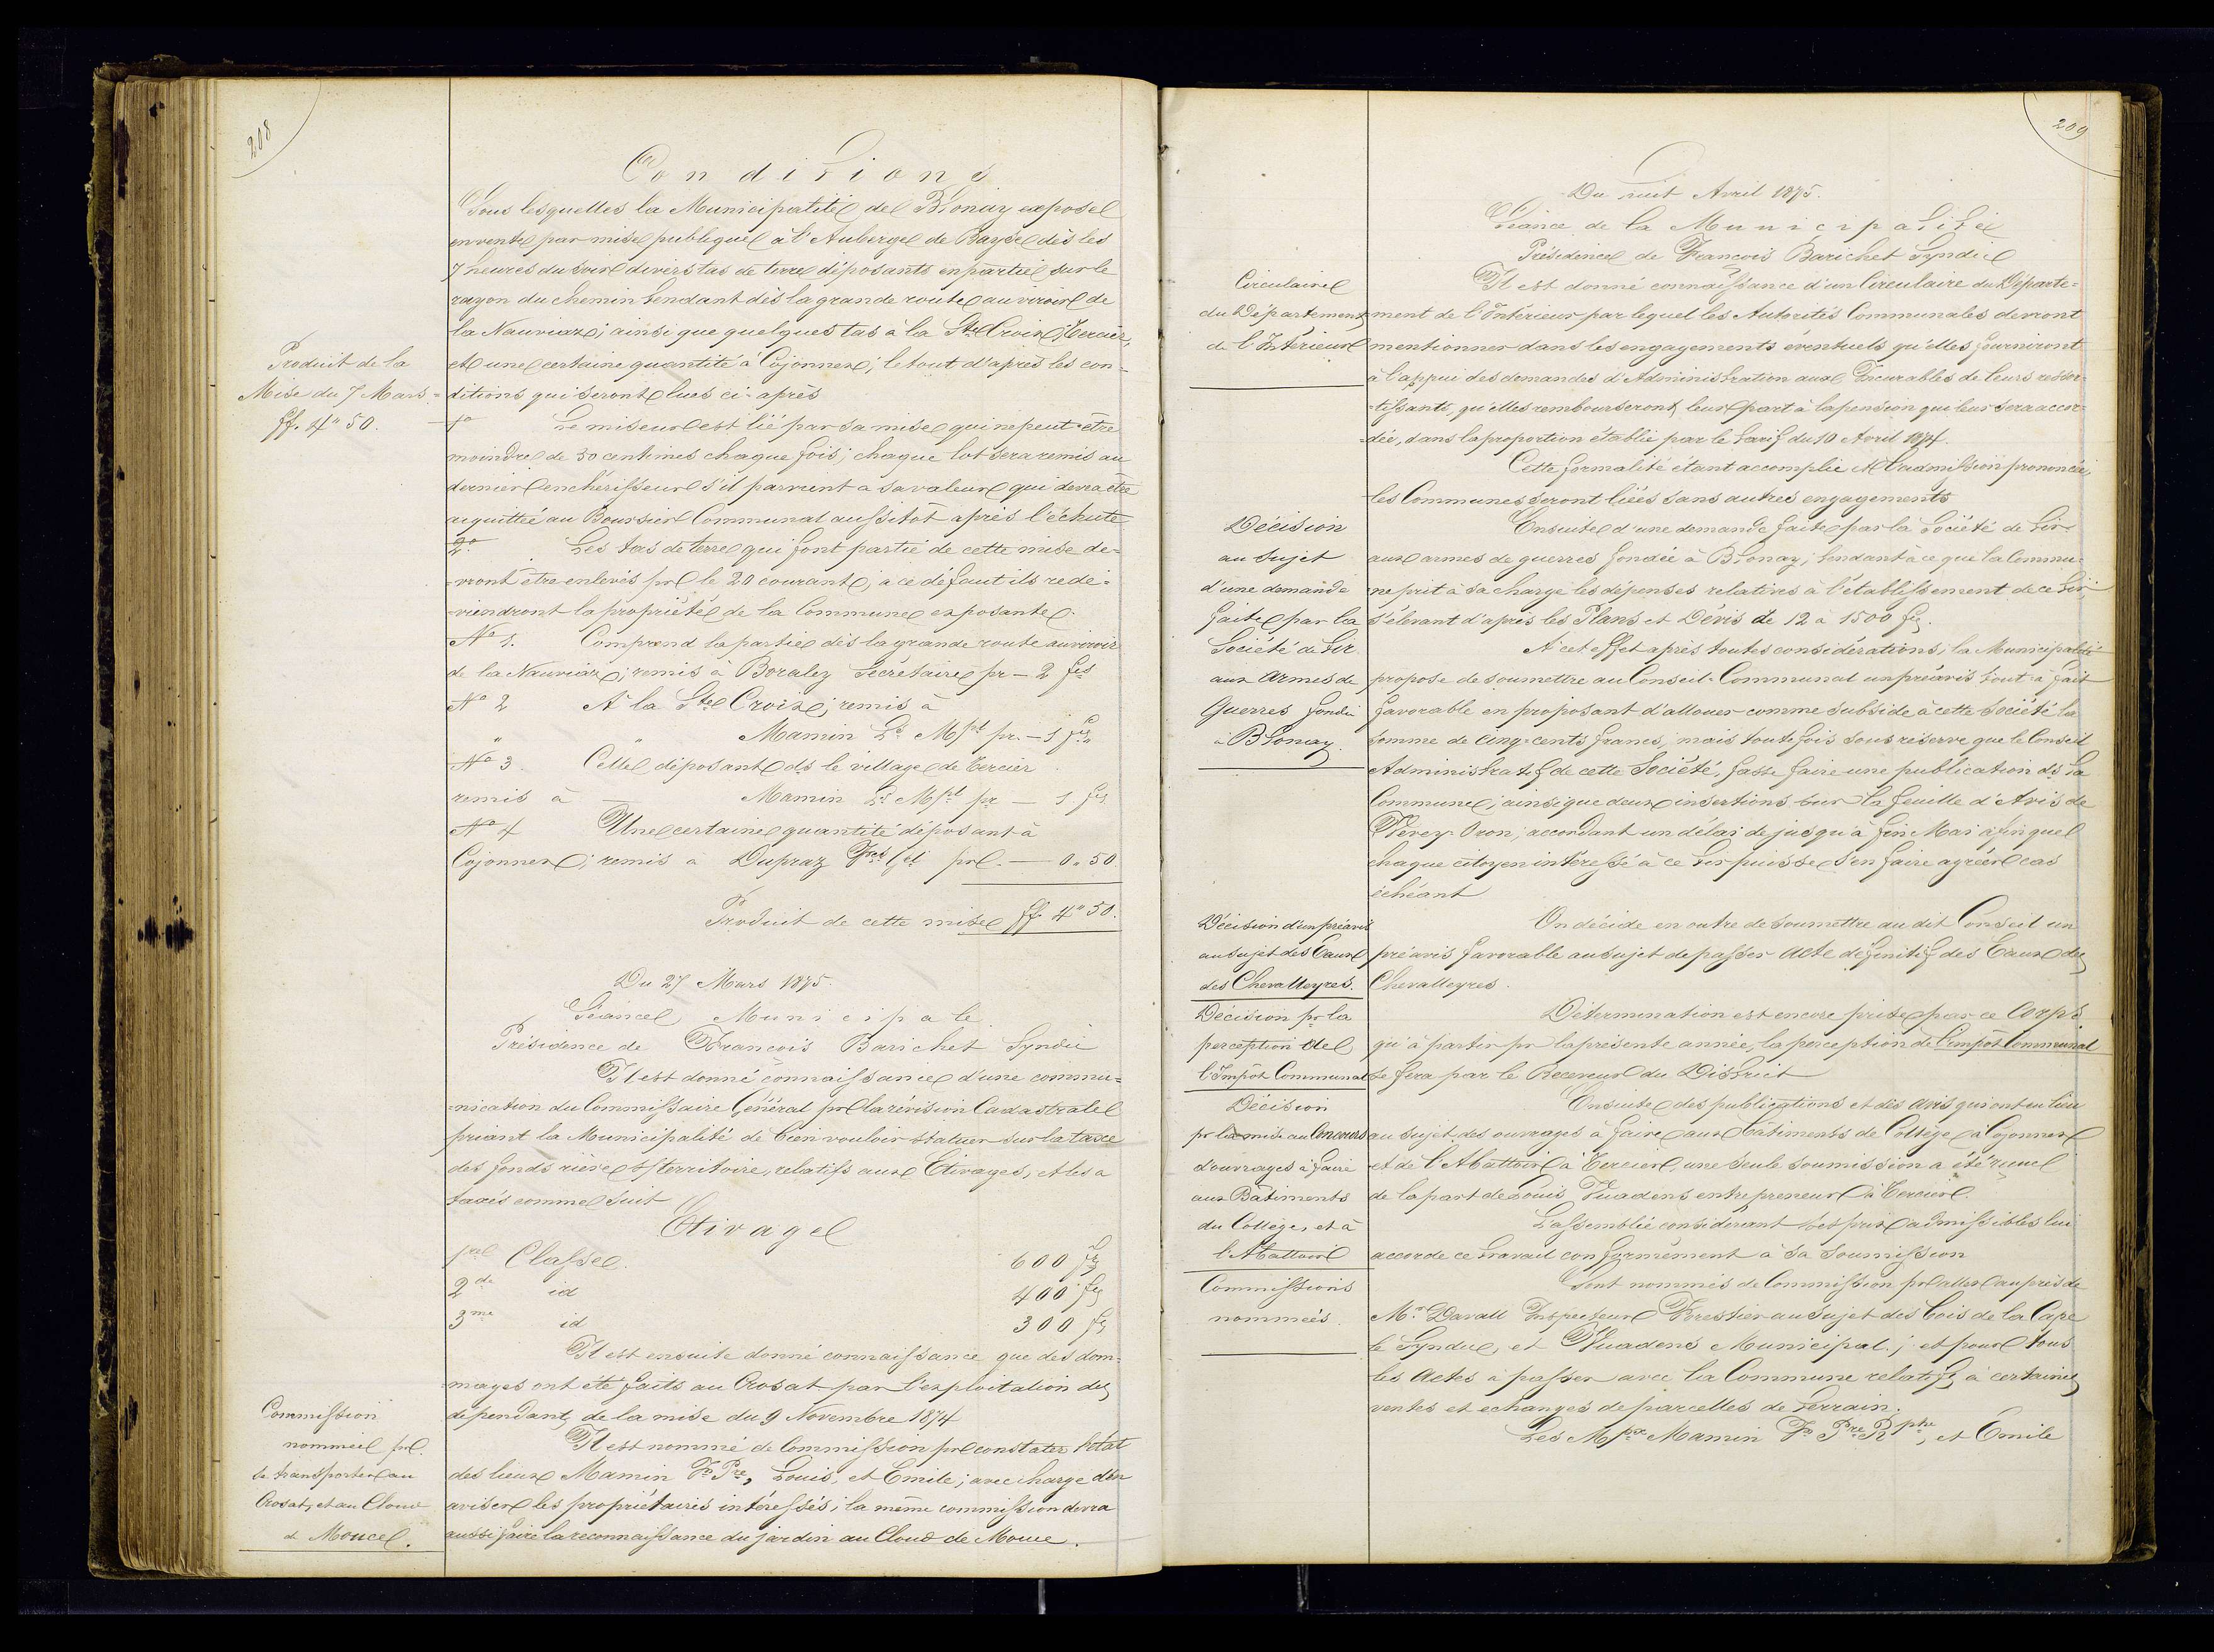 208
Conditions
Sous lesquelles la Municipalité de Blonay expose
en vente par mise publique à l'Auberge de Bayse dès les
7 heures du soir divers tas de terre déposants en partie sur le
rayon du chemin tendant dès la grande route au viroir de
la Nauviaz; ainsi que quelques tas à la Ste Croix, Tercier,
et une certaine quantité à Cojonnex; le tout d'après les con-
ditions qui seront lues ci-après
Produit de la
Mise du 7 Mars =
ff. 4" 50.
1o Le miseur est lié par sa mise qui ne peut être
moindre de 50 centimes chaque fois; chaque lot sera remis au
dernier enchérisseur s'il parvient à sa valeur qui devra être
acquittée au Boursier Communal aussitot après l'échute
2o. Les tas de terre qui font partie de cette mise de=
=vront être enlevés pr le 20 courant; à ce défaut ils rede=
=viendront la propriété de la Commune exposante.
No 1. Comprend la partie dès la grande route au viroir
de la Nauviaz; remis à Boralez Secrétaire pr – 2 fcs
No 2 A la Ste Croix; remis à
" " Mamin Ls Mpl pr. – 1 fc.
No 3. Celle déposant ds le village de Tercier
remis à — Mamin Ls Mpl pr — 1 fcs
No 4 Une certaine quantité déposant à
Cojonnex; remis à Dupraz pr. — 0" 50.
Produit de cette mise ff 4" 50.
Du 27 Mars 1875.
Séance Municipale
Présidence de François Barichet Syndic
Il est donné connaissance d'une commu=
=nication du Commissaire Général pr la révision Cadastrale
priant la Municipalité de bien vouloir statuer sur la taxe
des fonds rière territoire, relatifs aux Etivages, et les a
taxés comme suit
Etivage
1re Classe. 600 fr
2de id 400 fr
3me id 300 fr
Il est ensuite donné connaissance que des dom-
mages ont été faits au Crosat par l'exploitation des
dépendants de la mise du 9 Novembre 1874
Commission
nommée pr.
se transporter au
Crosat, et au Cloux
d Moucel.
Il est nommé de Commission pr constater l'état
des lieux Mamin Fs Pre, Louis, et Emile; avec charge d'en
aviser les propriétaires intéressés; la même commission devra
aussi faire la reconnaissance du jardin au Cloux de Mouce.
209
Du huit Avril 1875.
Séance de la Municipalité
Présidence de François Barichet Syndic
Circulaire
du Département
de l'Intérieur
Il est donné connaissance d'un Circulaire du Départe=
ment de l'Intérieur par lequel les Autorités Communales devront
mentionner dans les engagements éventuels qu'elles fourniront
à l'appui des demandes d'Administration aux Incurables de leurs ressor=
=tissants, qu'elles rembourseront leur part à la pension qui leur sera accor=
=dée, dans la proportion établie par le tarif du 10 Avril 1874.
Cette formalité étant accomplie et l'admission prononcée,
les Communes seront liées sans autres engagements
Décision
au sujet
d'une demande
faite par la
Société de tir
aux armes de
Guerres fondée
à Blonay.
Ensuite d'une demande faite par la Société de tir
aux armes de guerres fondée à Blonay; tendant à ce que la Commu=
ne prit à sa charge les dépenses relatives à l'établissement de ce tir,
s'élevant d'après les Plans et Dévis de 12 à 1500 fcs.
A cet effet après toutes considérations, la Municipalité
propose de soumettre au Conseil-Communal un préavis tout à fait
favorable en proposant d'allouer comme subside à cette Société la
somme de cinq-cents francs, mais toutefois sous réserve que le Conseil
Administratif de cette Société, fasse faire une publication ds la
Commune; ainsi que deux insertions sur la feuille d'Avis de
Vevey-Oron; accordant un délai de jusqu'à fin Mai afin que
chaque citoyen intéressé à ce tir puisse s'en faire agréer cas
échéant
Décision d'un préavis
au sujet des Eaux
des Chevalleyres.
On décide en outre de soumettre au dit Conseil un
préavis favorable au sujet de passer acte définitif des Eaux des
Chevalleyres.
Décision pr la
perception de
l'Impôt Communal
Détermination est encore prise par ce Corps
qu'à partir pr la présente année, la perception de l'impôt Communal
se fera par le Receveur du District
Décision
pr la mise au Concours
d'ouvrages à faire
aux Bâtiments
du Collège, et à
l'Abattoir
Ensuite des publications et des avis qui ont eu lieu
au sujet des ouvrages à faire aux bâtiments de Collège à Cojonnex
et de l'Abattoir à Tercier, une seule soumission a été reçue
de la part de Louis Vuadens entrepreneur à Tercier.
L'assemblée considérant ses prix admissibles lui
accorde ce travail conformément à sa soumission
Commissions
nommées.
Sont nommés de Commission pr aller auprès de
Mr. Davall Inspecteur Forestier au sujet des bois de la Cape
le Syndic, et Vuadens Municipal; et pour tous
les actes à passer avec la Commune relatifs à certaines
ventes et échanges de parcelles de terrain.
Les Mpx Mamin Fs Pre Rphe, et Emile